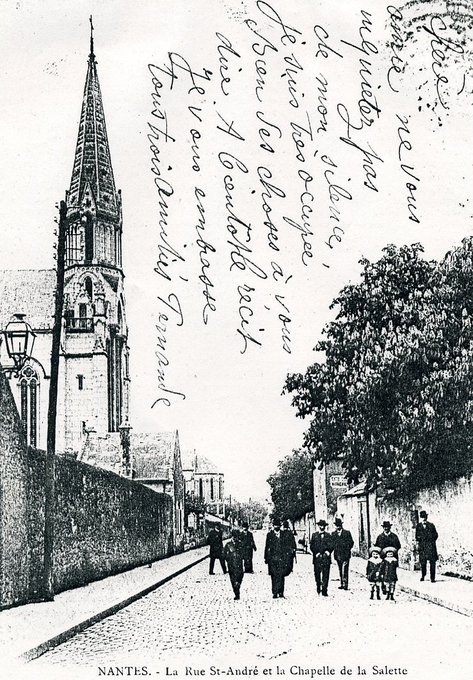 Chère
amie ne vous
inquietez pas
de mon silence,
Je suis très occupée
Bien des choses à vous
dire A bientôt le récit
Je vous embrasse
Tous trois amitiés
NANTES. - La Rue St-André et la Chapelle de la Salette